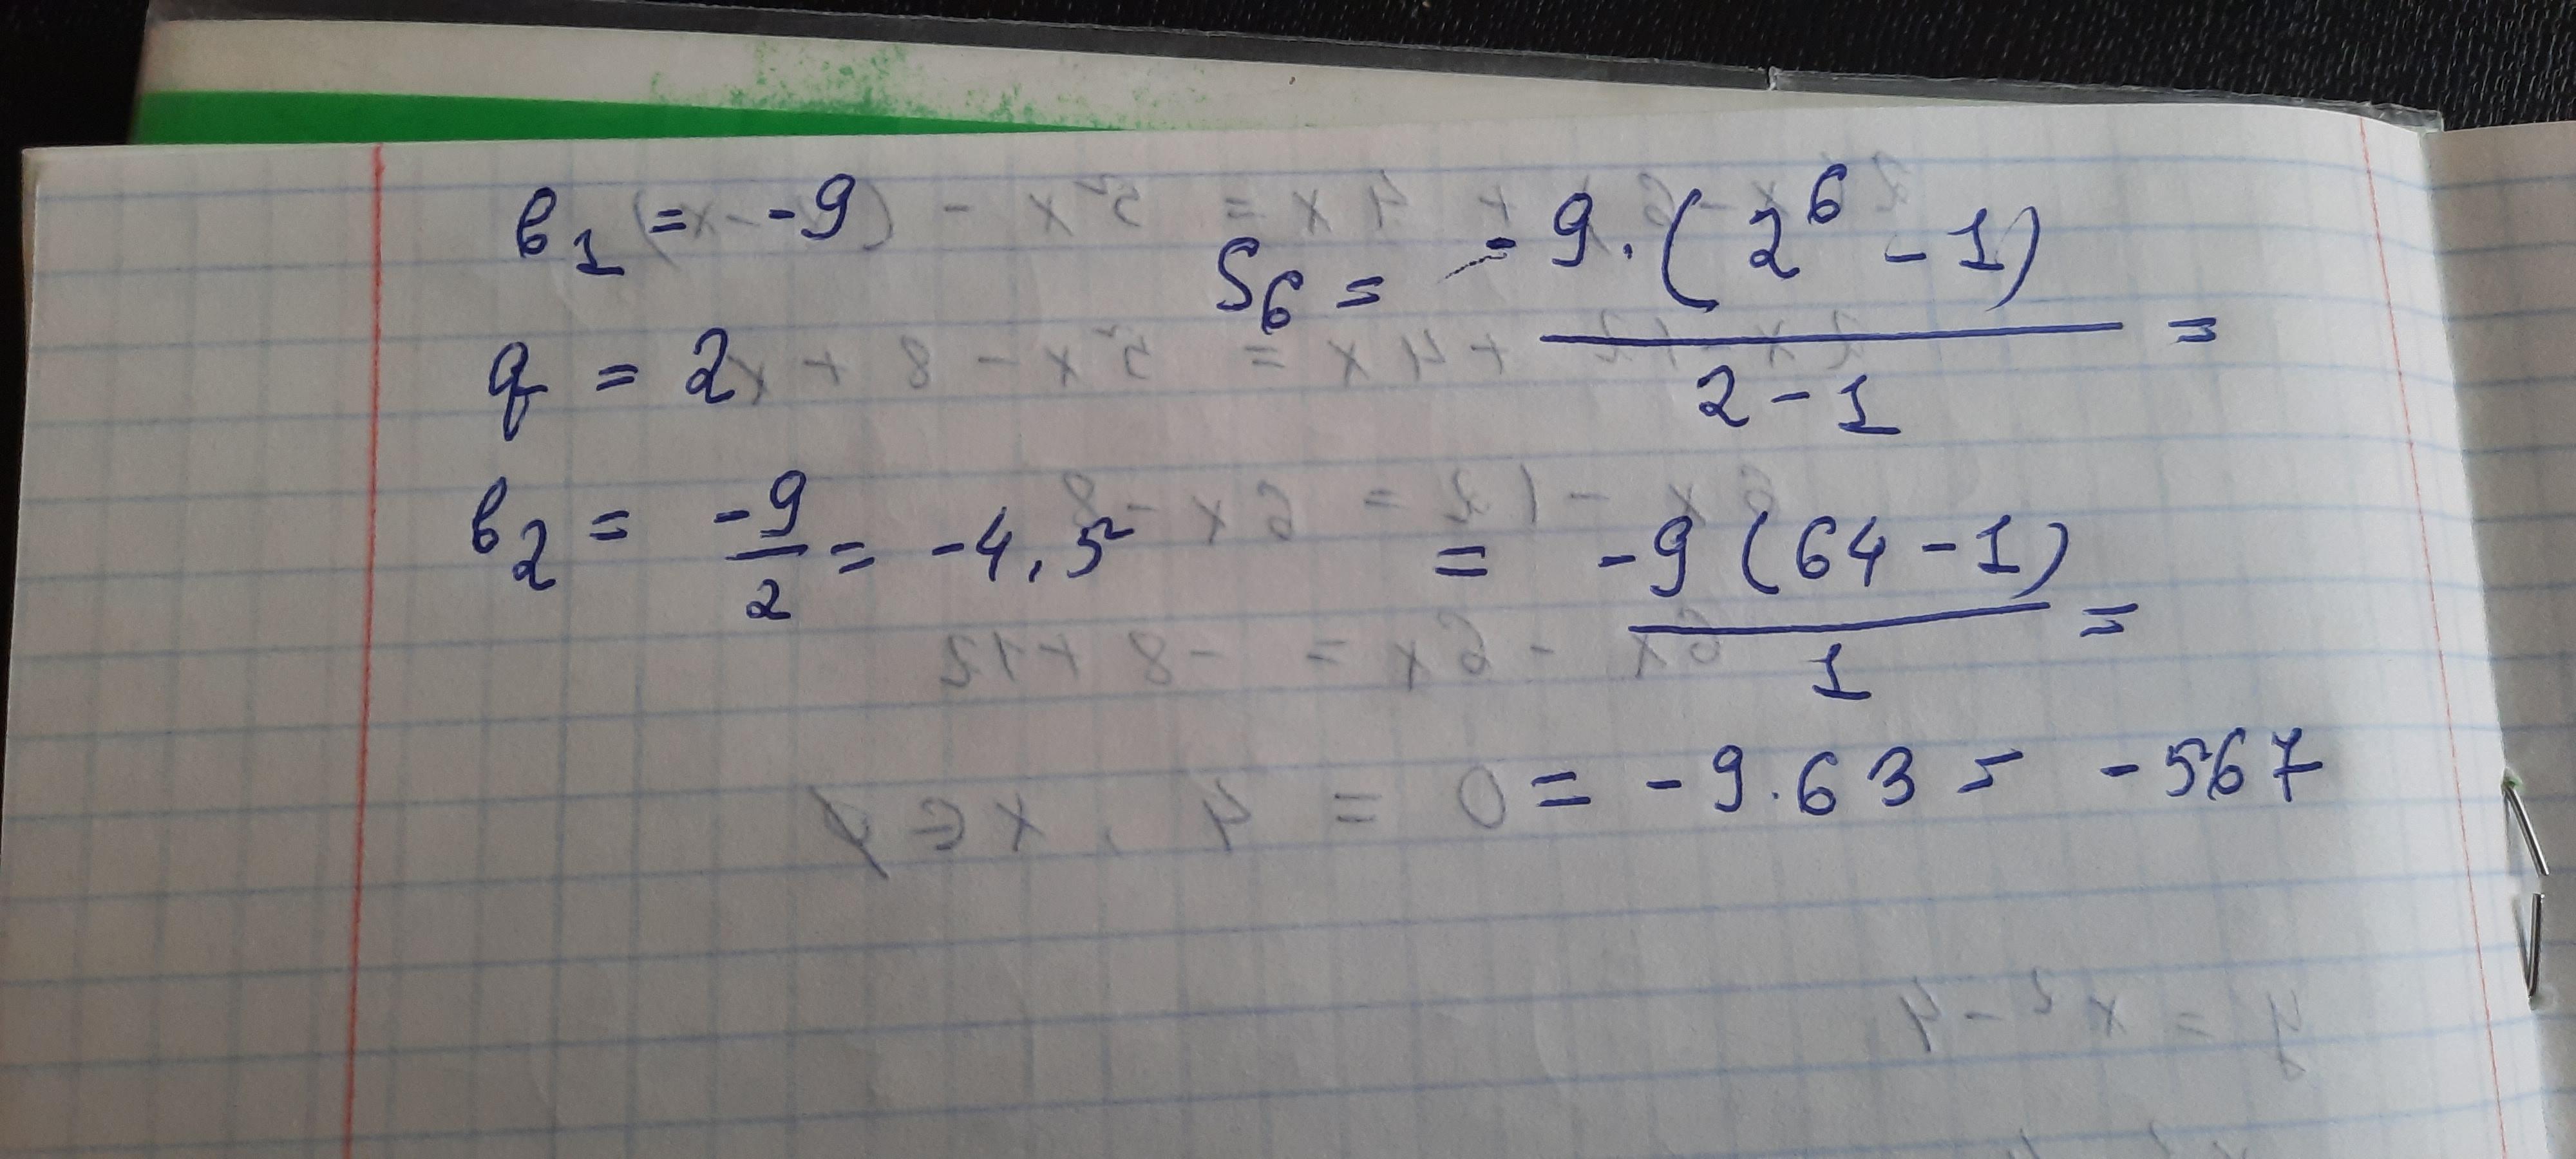 b₁ = -9
q = 2
b₂ = -9/2 = -4,5
S₆ = -9·(2⁶ - 1)/(2 - 1) =
= -9(64 - 1)/1 =
= -9·63 = -567